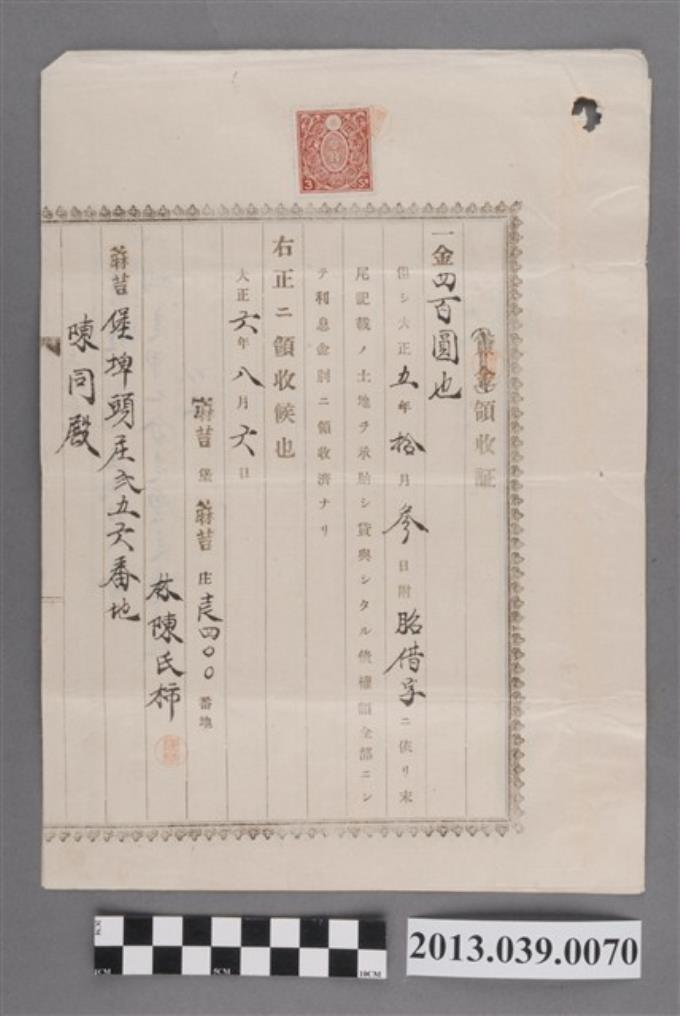 金領収証
一金四百圓也
但シ大正五年拾月参日附胎借字ニ依リ末
尾記載ノ土地ヲ承胎シ貸與シタル債權額全部ニシ
テ利息金別ニ領收濟ナリ
右正ニ領收候也
大正六年八月六日
蔴荳堡蔴荳庄壱四〇〇番地
林陳氏柿
蔴荳堡埤頭庄弍五六番地
陳同殿
3 Sn
1CM
5CM
10CM
2013.039.0070